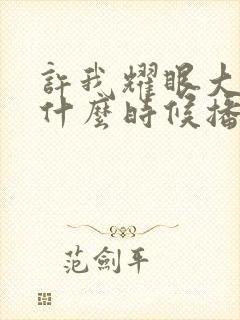 許我耀眼大
什麼時候播
范劍平